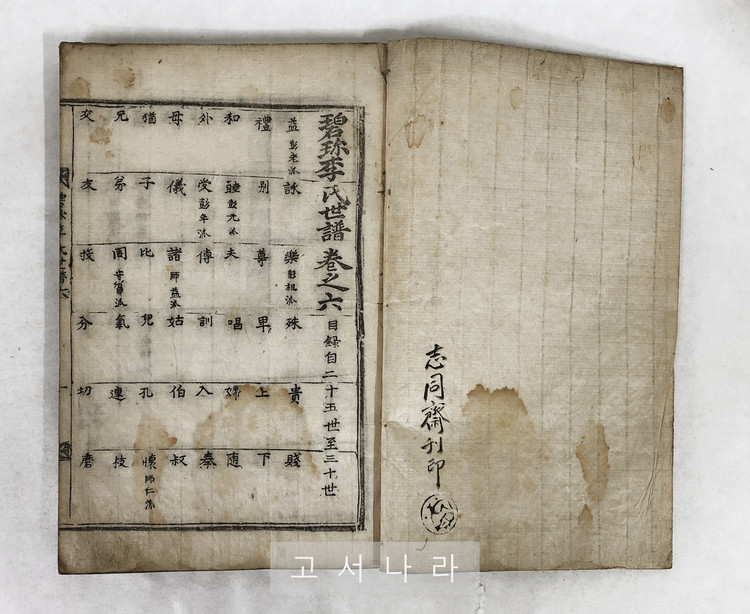 志同齋刊印
碧珍李氏世譜 卷之六 目錄自二十五世至三十世
益 彭老派 詠 樂 彭祖派 殊 貴 賤
禮 别 尊 卑 上 下
和 睦 彭元派 夫 唱 婦 随
外 受 彭年派 傅 訓 入 奉
母 儀 諸 師益派 姑 伯 叔
猶 子 比 兒 孔 懷 師仁派
兄 弟 同 派 氣 連 枝
交 友 投 分 切 磨
고서나라